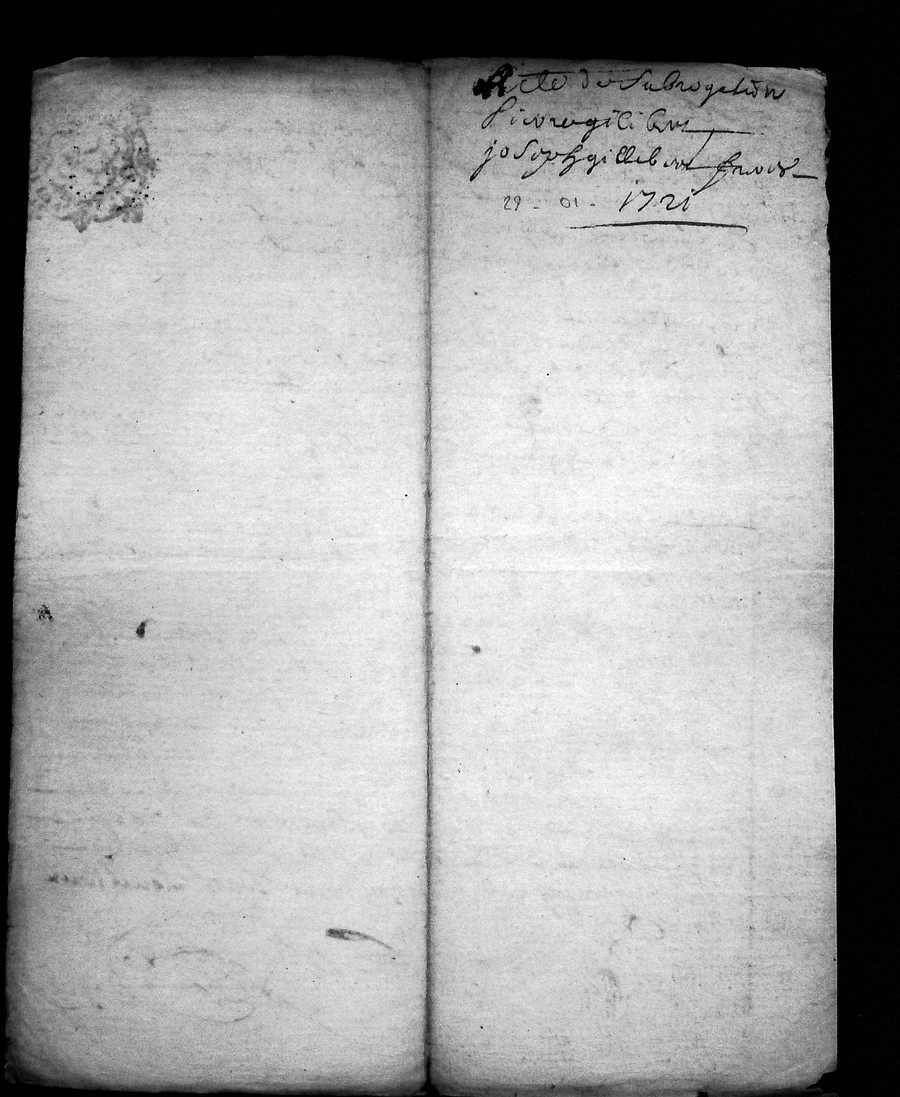 Acte de Subrogation
Pierre gilibert
joseph gillebert frerers
29 - 01 - 1721